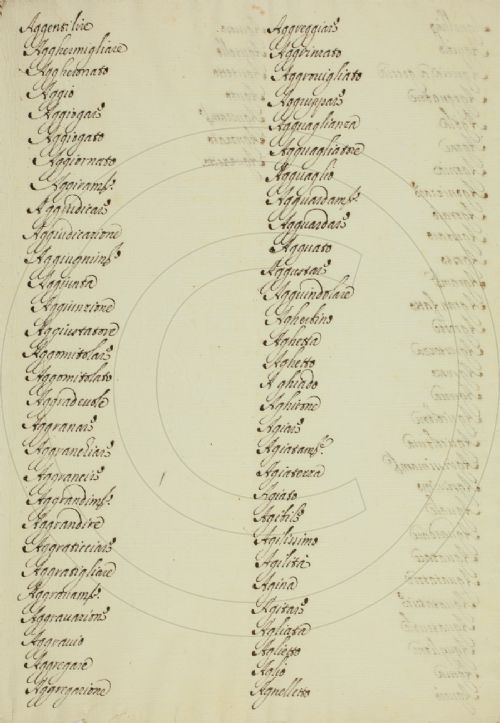 Aggentilire
Agghermigliare
Agghironato
Aggio
Aggiogar̃
Aggiogato
Aggiornato
Aggiram.to
Aggiudicar̃
Aggiudicazione
Aggiugnim.to
Aggiunta
Aggiunzione
Aggiustatore
Aggomitolar̃
Aggomitolato
Aggradevole
Aggranar̃
Aggranellar̃
Aggrancir̃
Aggrandim.to
Aggrandire
Aggraticciar̃
Aggratigliare
Aggravam.to
Aggravazion̄
Aggravio
Aggregare
Aggregazione
Aggreggiar̃
Aggrinzato
Aggrovigliato
Aggruppar̃
Agguaglianza
Agguagliatore
Agguaglio
Agguardam.to
Agguardar̃
Agguato
Aggustar̃
Agguindolare
Aghettino
Aghetta
Aghetto
Aghiado
Aghirone
Agiar̃
Agiatam.te
Agiatezza
Agiato
Agibil̄
Agilissimo
Agilità
Agina
Agitar̃
Agliata
Aglietto
Aglio
Agnelletto